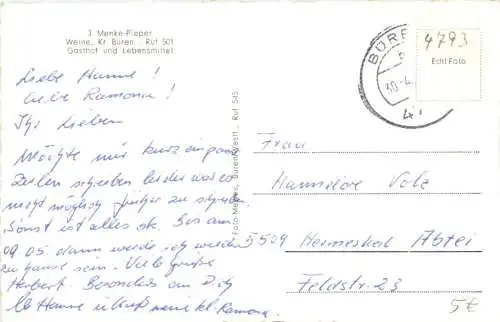 J. Menke-Pieper
Weine, Kr. Büren · Ruf 501
Gasthof und Lebensmittel
Liebe Hanne!
Liebe Ramona!
Ihr Lieben
Möchte mir kurz ein paar
Zeilen schreiben leider war es
nicht möglich früher zu schreiben.
Sonst ist alles ok. Bis am
09.05. dann werde ich wieder
zu hause sein. Viele Grüße
Herbert. Besonders an Dich
lb Hanne u. Kuß meine kl. Ramona.
Foto-Menke, Büren/Westf., Ruf 545
BÜREN
30.4.
4793
Echt Foto
Frau
Hannelore Volz
5509 Hermeskeil Abtei
Feldstr. 23
5€